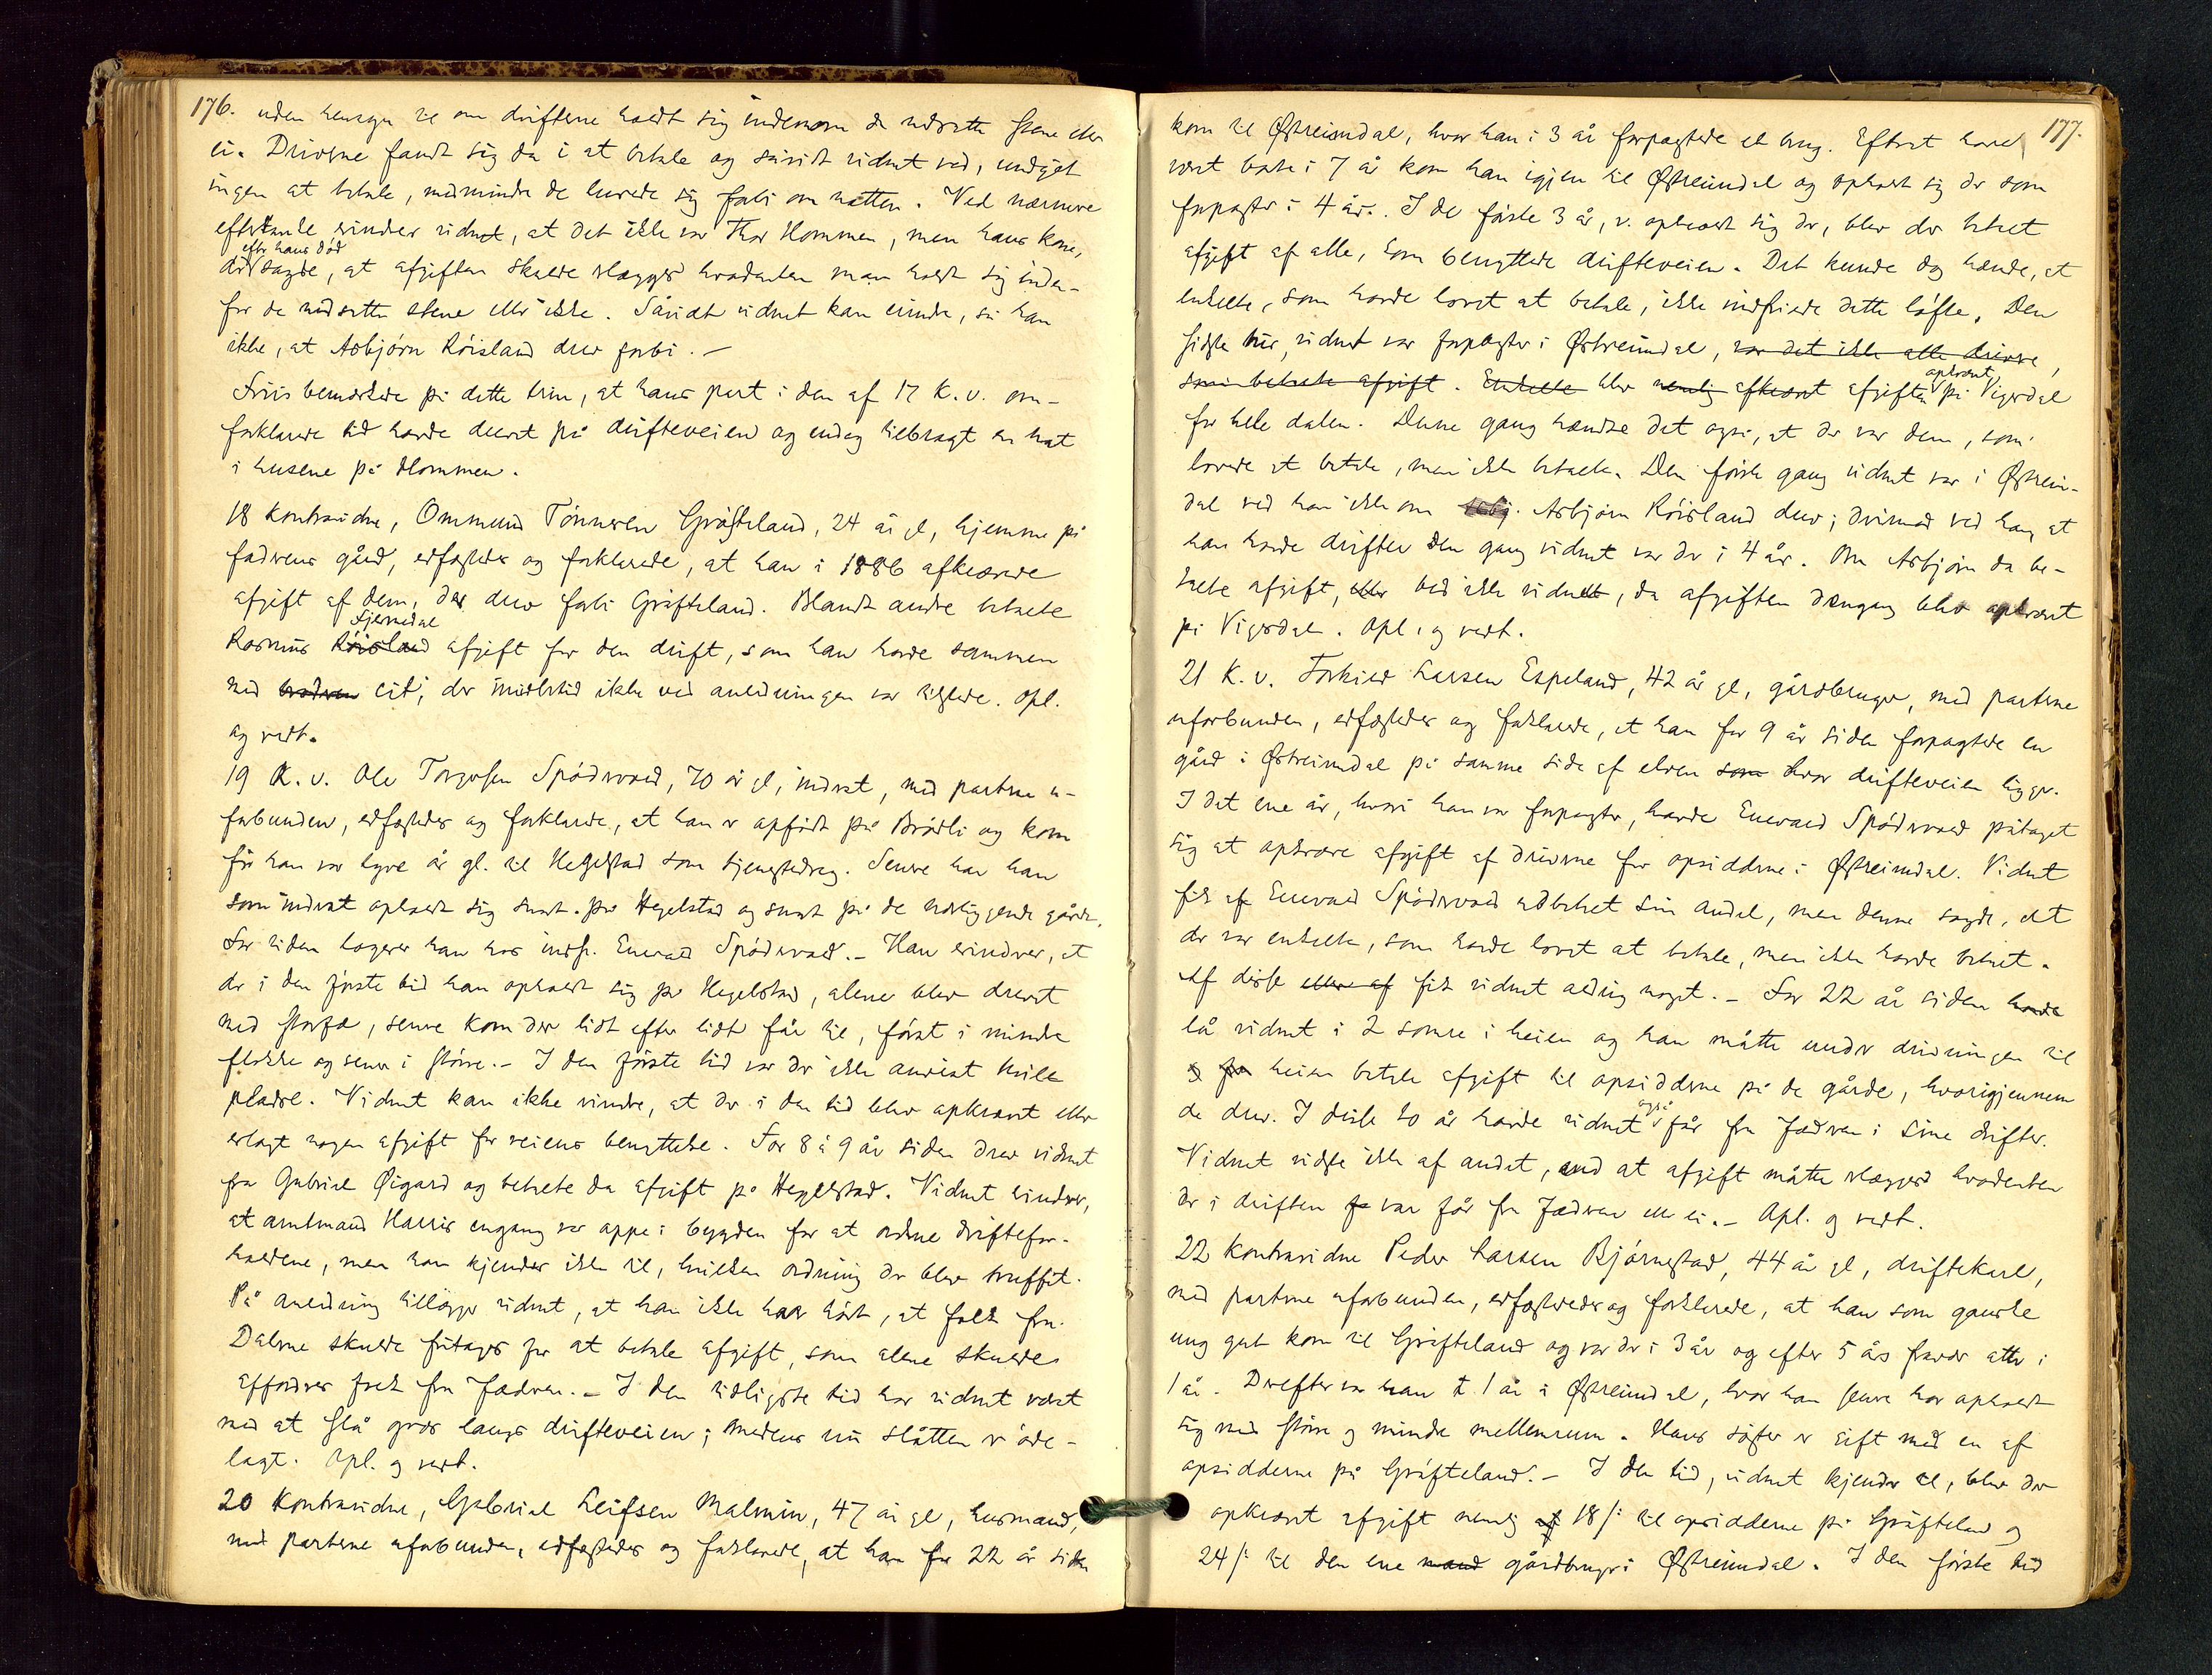 176.
uden hensyn til om drifterne holdt sig indenom de nedsatte stene eller
ei. Driverne fandt sig da i at betale og såvidt vidnet ved, undgik
ingen at betale, medmindre de lurede sig forbi om natten. Ved nærmere
eftertanke erindrer vidnet, at det ikke var Thor Hommen, men hans kone,
efter hans død
der sagde, at afgiften skulde erlægges hvadenten man holdt sig inden-
for de nedsatte stene eller ikke. Såvidt vidnet kan erindre, så han
ikke, at Asbjørn Røisland drev forbi. –
Friis bemærkede på dette trin, at hans part i den af 17 K. v. om-
forklarede tid havde drevet på drifteveien og endog tilbragt en nat
i husene på Hommen.
18 Kontravidne, Ommund Tønnesen Gråfteland, 24 år gl, hjemme på
faderens gård, edfæstedes og forklarede, at han i 1886 afkrævede
afgift af dem, der drev forbi Gråfteland. Blandt andre betalte
Fjermedal
Rasmus Røisland afgift for den drift, som han havde sammen
med broderen cit; der imidlertid ikke ved anledningen var tilstede. Opl.
og vedt.
19 K. v. Ole Torgersen Spødervold, 70 år gl, inderst, med parterne u-
forbunden, edfæstedes og forklarede, at han er opfødt på Brådli og kom
før han var tyve år gl. til Hegelstad som tjenestedreng. Senere har han
som inderst opholdt sig snart på Hegelstad og snart på de nærliggende gårde.
For tiden logerer han hos indst. Enevald Spødervold. – Han erindrer, at
der i den første tid han opholdt sig på Hegelstad, alene blev drevet
med storfæ, senere kom der lidt efter lidt får til, først i mindre
flokke og senere i større. – I den første tid var der ikke anvist hvile
pladse. Vidnet kan ikke erindre, at der i den tid blev opkrævet eller
erlagt nogen afgift for veiens benyttelse. For 8 à 9 år siden drev vidnet
for Gabriel Øigard og betalte da afgift på Hegelstad. Vidnet erindrer,
at amtmand Harris engang var oppe i bygden for at ordne driftefor-
holdene, men han kjender ikke til, hvilken ordning der blev truffet.
På anledning tillægger vidnet, at han ikke har hørt, at folk fra
Dalerne skulde fritages for at betale afgift, som alene skulde
affordres folk fra Jæderen. – I den tidligste tid har vidnet været
med at slå græs langs drifteveien; medens nu slåtten er øde-
lagt. Opl. og vedt.
20 Kontravidne, Gabriel Leifsen Malmin, 47 år gl, husmand,
med parterne uforbunden, edfæstedes og forklarede, at han for 22 år siden
177.
kom til Østreimdal, hvor han i 3 år forpagtede et brug. Efterat have
været borte i 7 år kom han igjen til Østreimdal og opholdt sig der som
forpagter i 4 år. I de første 3 år, v. opholdt sig der, blev der betalt
afgift af alle, som benyttede drifteveien. Det kunde dog hænde, at
enkelte, som havde lovet at betale, ikke indfriede dette løfte. Den
sidste tur, vidnet var forpagter i Østreimdal, var det ikke alle drivere,
som betalte afgift. Enkelte blev nemlig afkrævet afgiften på Vigesdal
opkrævet
for hele dalen. Denne gang hændte det også, at der var dem, som
lovede at betale, men ikke betalte. Den første gang vidnet var i Østreim-
dal ved han ikke om Asbjørn Røisland drev; derimod ved han, at
han havde drifter den gang vidnet var der i 4 år. Om Asbjørn da be-
talte afgift, eller ved ikke vidnet, da afgiften dengang blev opkrævet
på Vigesdal. Opl. og vedt.
21 K. v. Torkild Larsen Espeland, 42 år gl, gårdbruger, med parterne
uforbunden, edfæstedes og forklarede, at han for 9 år siden forpagtede en
gård i Østreimdal på samme side af elven som hvor drifteveien ligger.
I det ene år, hvori han var forpagter, havde Enevald Spødervold påtaget
sig at opkræve afgift af driverne for opsidderne i Østreimdal. Vidnet
fik af Enevald Spødervold udbetalt sin andel, men denne sagde, at
der var enkelte, som havde lovet at betale, men ikke havde betalt.
Af disse eller af fik vidnet aldrig noget. – For 22 år siden havde
lå vidnet i 2 somre i heien og han måtte under drivningen til
og fra heien betale afgift til opsidderne på de gårde, hvorigjennem
de drev. I disse to år havde vidnet også får fra Jæderen i sine drifter.
Vidnet vidste ikke af andet, end at afgift måtte erlægges hvadenten
der i driften fo var får fra Jæderen eller ei. – Opl. og vedt.
22 Kontravidne Peder Larsen Bjørnestad, 44 år gl, driftekarl,
med parterne uforbunden, edfæstedes og forklarede, at han som ganske
ung gut kom til Gråfteland og var der i 3 år og efter 5 års fravær atter i
1 år. Derefter var han t. 1 år i Østreimdal, hvor han senere har opholdt
sig med større og mindre mellemrum. Hans søster er gift med en af
opsidderne på Gråfteland. – I den tid, vidnet kjender til, blev der
opkrævet afgift nemlig af 18 /: til opsidderne på Gråfteland og
24 /: til den ene mand gårdbruger i Østreimdal. I den første tid